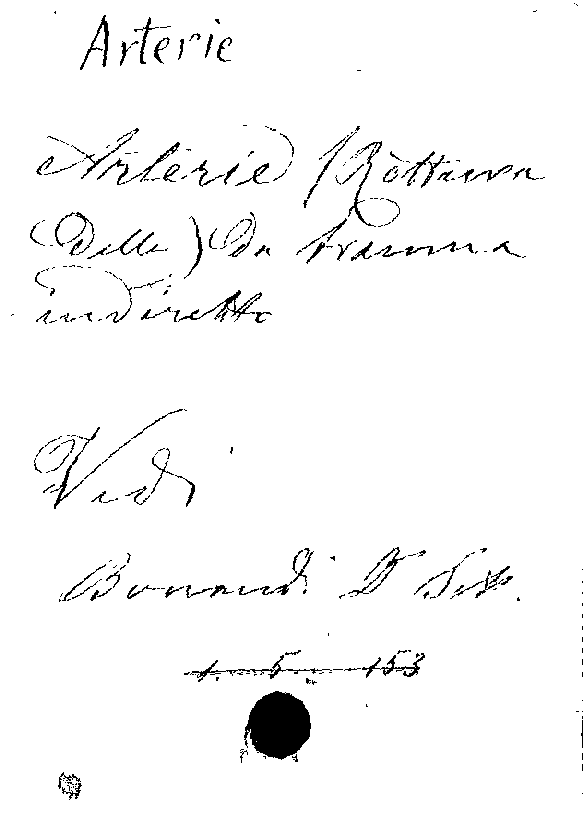 Arterie
Arterie (Rottura
Delle) Da trauma
indiretto
Vedi
Bonandi D
1. 5. 153